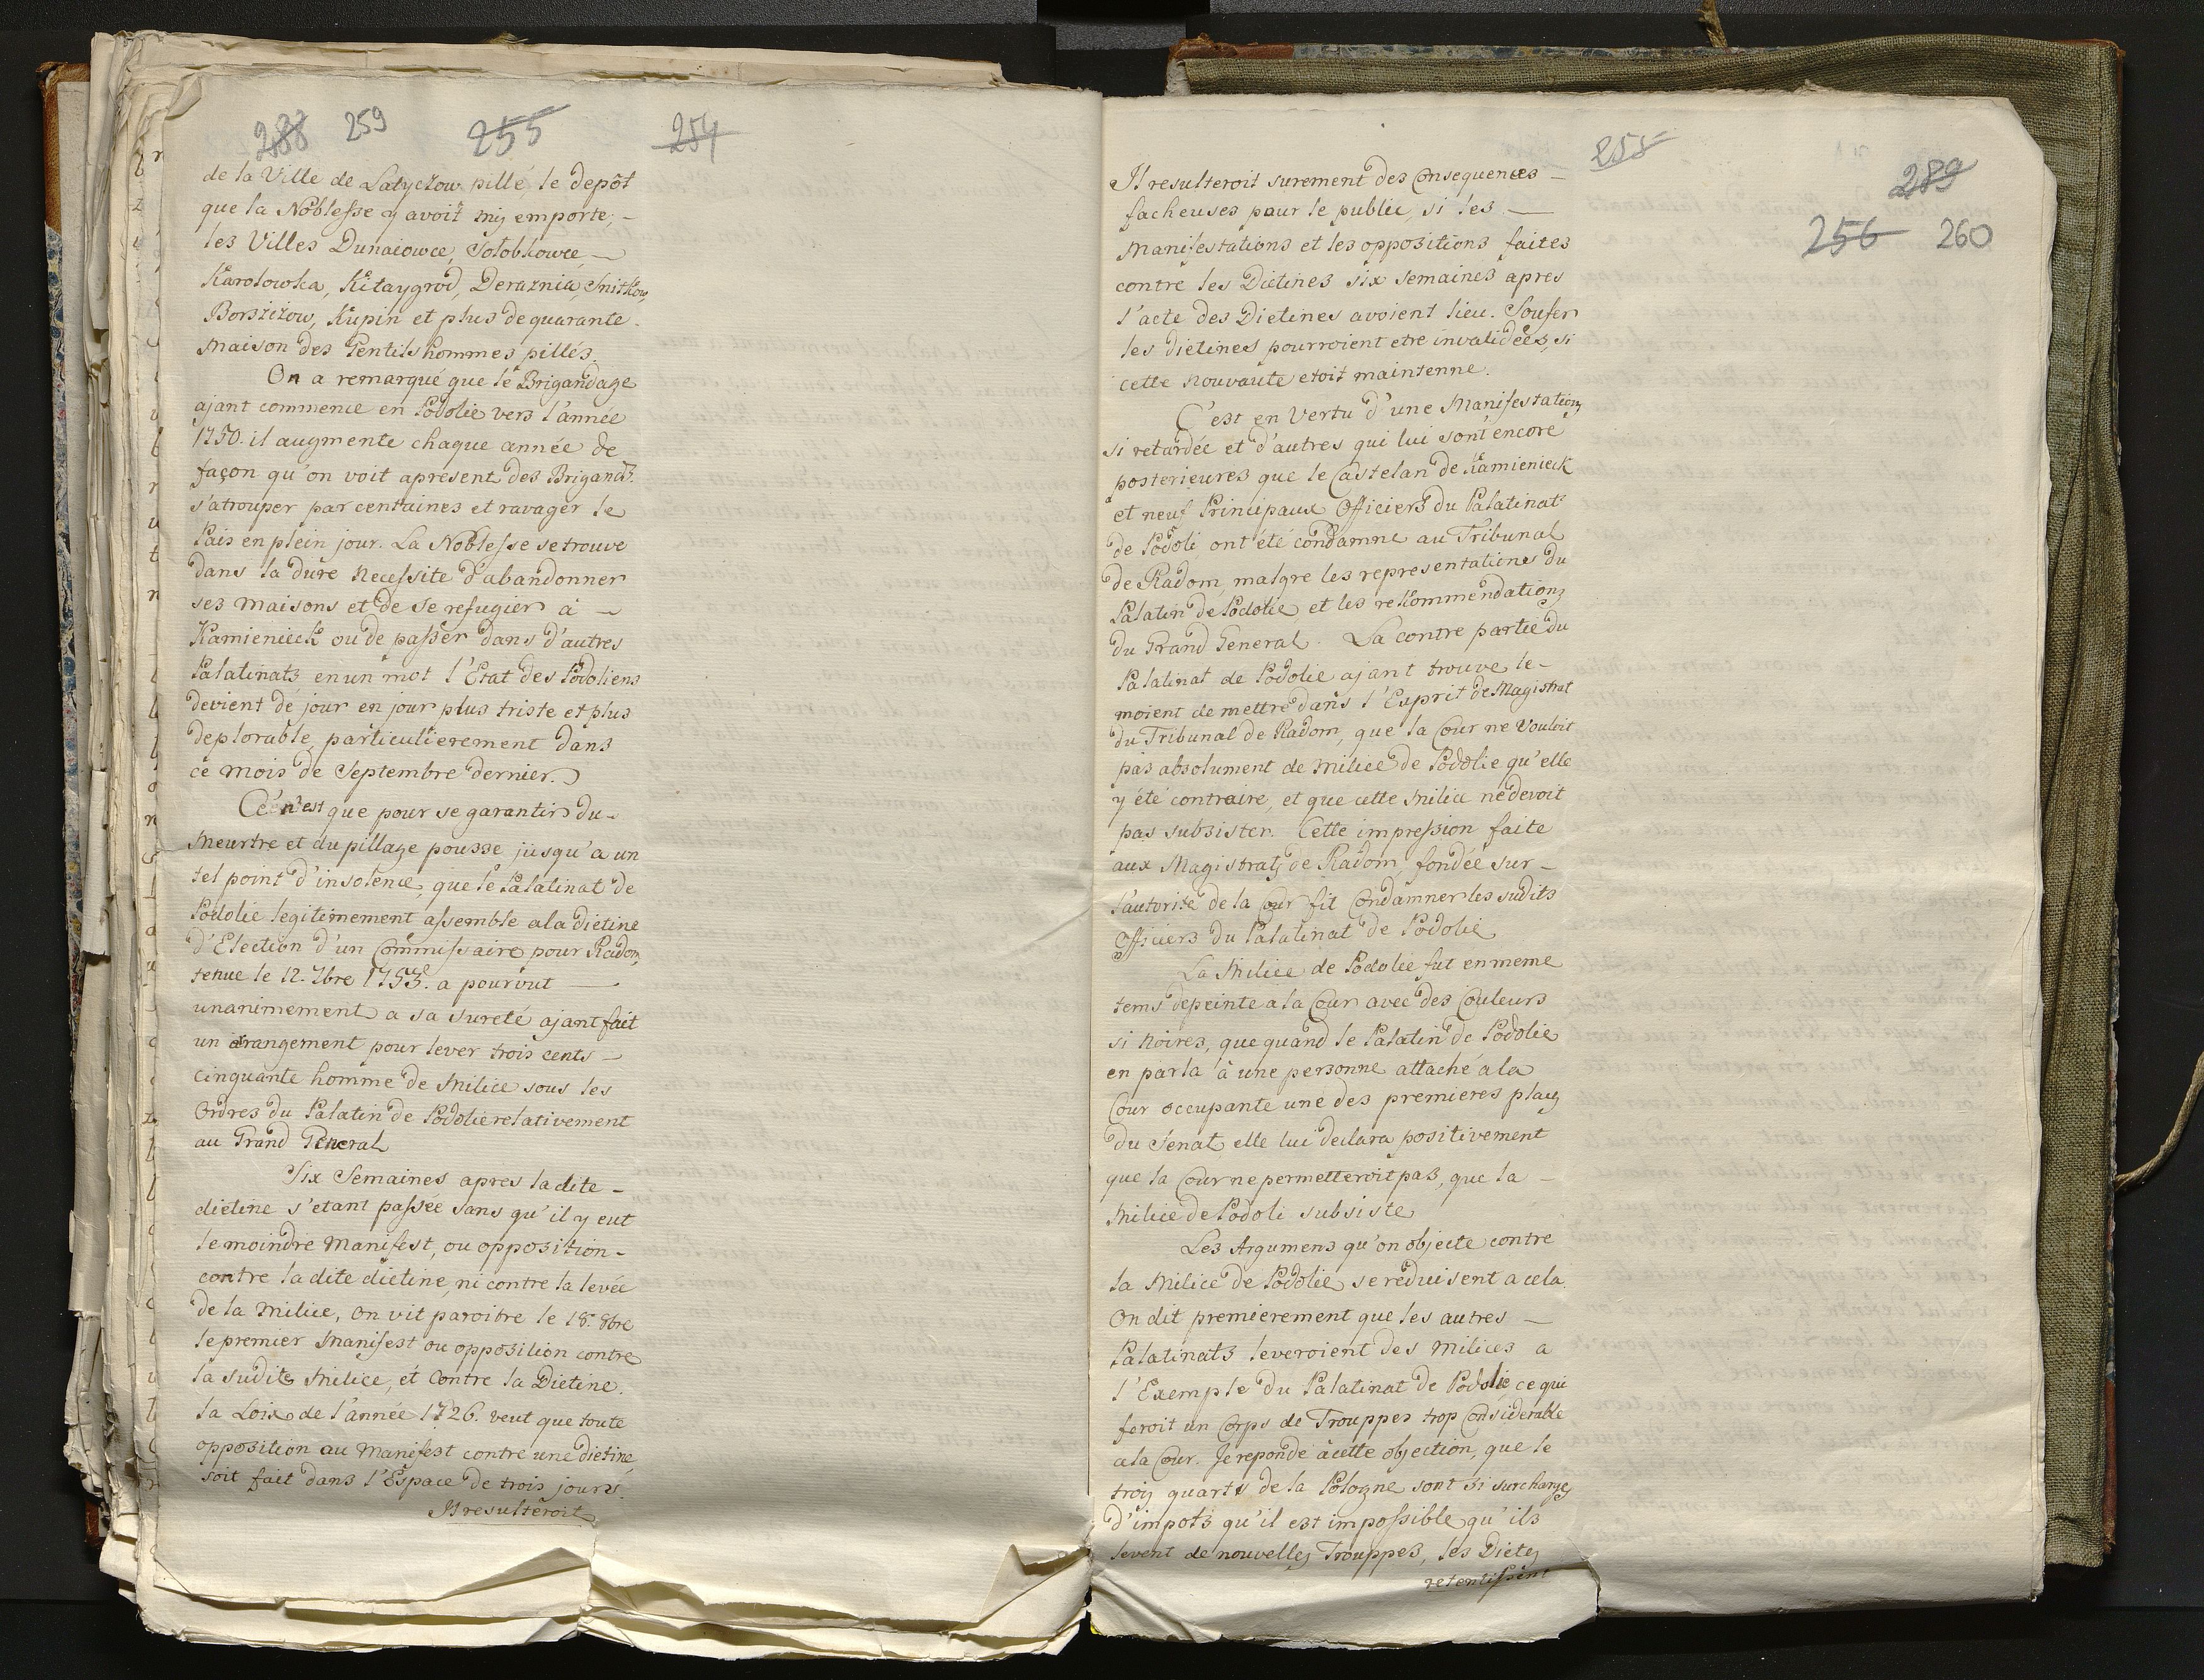 288 259 255 254
de la Ville de Latyczow pillé, le depôt
que la Noblesse y avoit mis emporte; –
les Villes Dunaiowce, Solobkowce, –
Karolowka, Kitaygrod, Deraznia, Snitkow,
Borszczow, Kupin et plus de quarante
maison des Gentils hommes pillés.
On a remarqué que le Brigandage
ajant commence en Podolie vers l'année
1750. il augmente chaque année de
façon qu'on voit apresent des Brigands
s'atrouper par centaines et ravager le
Païs en plein jour. La Noblesse se trouve
dans la dure necessite d'abandonner
ses maisons et de se refugier à –
Kamienieck ou de passer dans d'autres
Palatinats, en un mot l'Etat des Podoliens
devient de jour en jour plus triste et plus
deplorable, particulierement dans
ce mois de Septembre dernier.
Ce n'est que pour se garantir du –
meurtre et du pillage pousse jusqu'a un
tel point d'insolence, que le Palatinat de
Podolie legitimement assemble a la dietine
d'Election d'un Commissaire pour Radom,
tenue le 12. 7bre 1753. a pourvut –
unanimement a sa sureté ajant fait
un arangement pour lever trois cents –
cinquante homme de Milice sous les
Ordres du Palatin de Podolie relativement
au Grand General
Six Semaines apres la dite –
dietine s'etant passée sans qu'il y eut
le moindre Manifest, ou opposition –
contre la dite dietine, ni contre la levée
de la Milice, On vit paroitre le 18. 8bre
le premier Manifest ou opposition contre
la sudite Milice, et Contre la Dietine.
la Loix de l'année 1726. veut que toute
opposition au Manifest contre une dietine,
soit fait dans l'Espace de trois jours.
Il resulteroit
255 289
256 260
Il resulteroit surement des Consequences –
facheuses pour le public, si les –
Manifestations et les oppositions faites
contre les Dietines six semaines apres
l'acte des Dietines avoient lieu. Toutes
les dietines pourroient etre invalidées, si
cette nouvaute etoit maintenne.
C'est en Vertu d'une Manifestation
si retardée et d'autres qui lui sont encore
posterieures que le Castelan de Kamienieck
et neuf Principaux Officiers du Palatinat
de Podoli ont été condamne au Tribunal
de Radom, malgre les representations du
Palatin de Podolie, et les rekommendations
du Grand General. La contre partie du
Palatinat de Podolie ajant trouve le –
moient de mettre dans l'Esprit de Magistrat
du Tribunal de Radom, que la Cour ne Vouloit
pas absolument de Milice de Podolie qu'elle
y été contraire, et que cette Milice ne devoit
pas subsister. Cette impression faite
aux Magistrats de Radom, fondée sur –
l'autorite de la Cour fit Condamner les sudits
Officiers du Palatinat de Podolie
La Milice de Podolie fut en meme
tems depeinte a la Cour avec des Couleurs
si noires, que quand le Palatin de Podolie
en parla à une personne attaché a la
Cour occupante une des premieres places
du Senat, elle lui declara positivement
que la Cour ne permetteroit pas, que la –
Milice de Podoli subsiste
Les Argumens qu'on objecte contre
la Milice de Podolie se reduisent a cela.
On dit premierement que les autres –
Palatinats leveroient des milices a
l'Exemple du Palatinat de Podolie ce qui
feroit un Corps de Trouppes trop Considerable
a la Cour. Je reponde à cette objection, que le
trois quarts de la Pologne sont si surcharges
d'impots qu'il est impossible qu'ils
levent de nouvelles Trouppes, les Dietes
retentissent